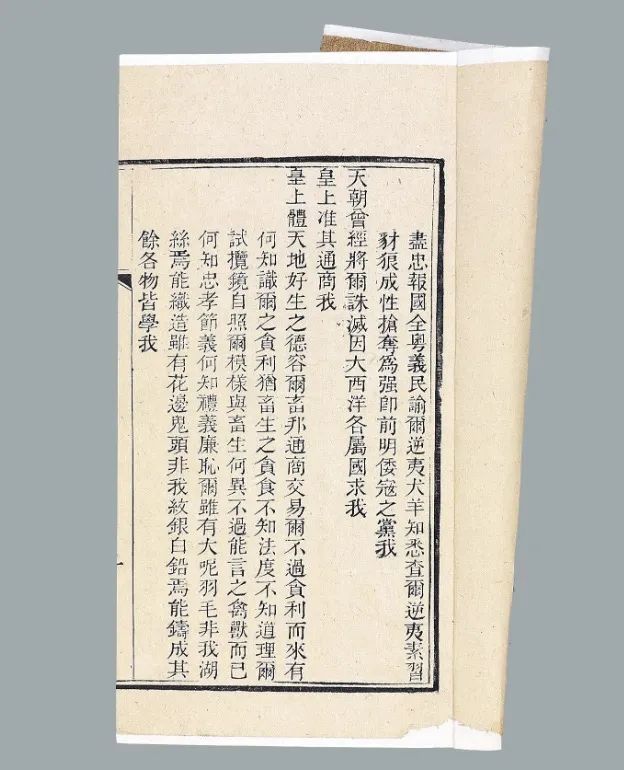 盡忠報國全粵義民諭爾逆夷犬羊知悉查爾逆夷素習
豺狼成性搶奪爲强卽前明倭寇之黨我
天朝曾經將爾誅滅因大西洋各屬國求我
皇上准其通商我
皇上體天地好生之德容爾畜邦通商交易爾不過貪利而來有
何知識爾之貪利猶畜生之貪食不知法度不知道理爾
試攬鏡自照爾模樣與畜生何異不過能言之禽獸而已
何知忠孝節義何知禮義廉恥爾雖有大呢羽毛非我湖
絲焉能織造雖有花邊鬼頭非我紋銀白鉛焉能鑄成其
餘各物皆學我